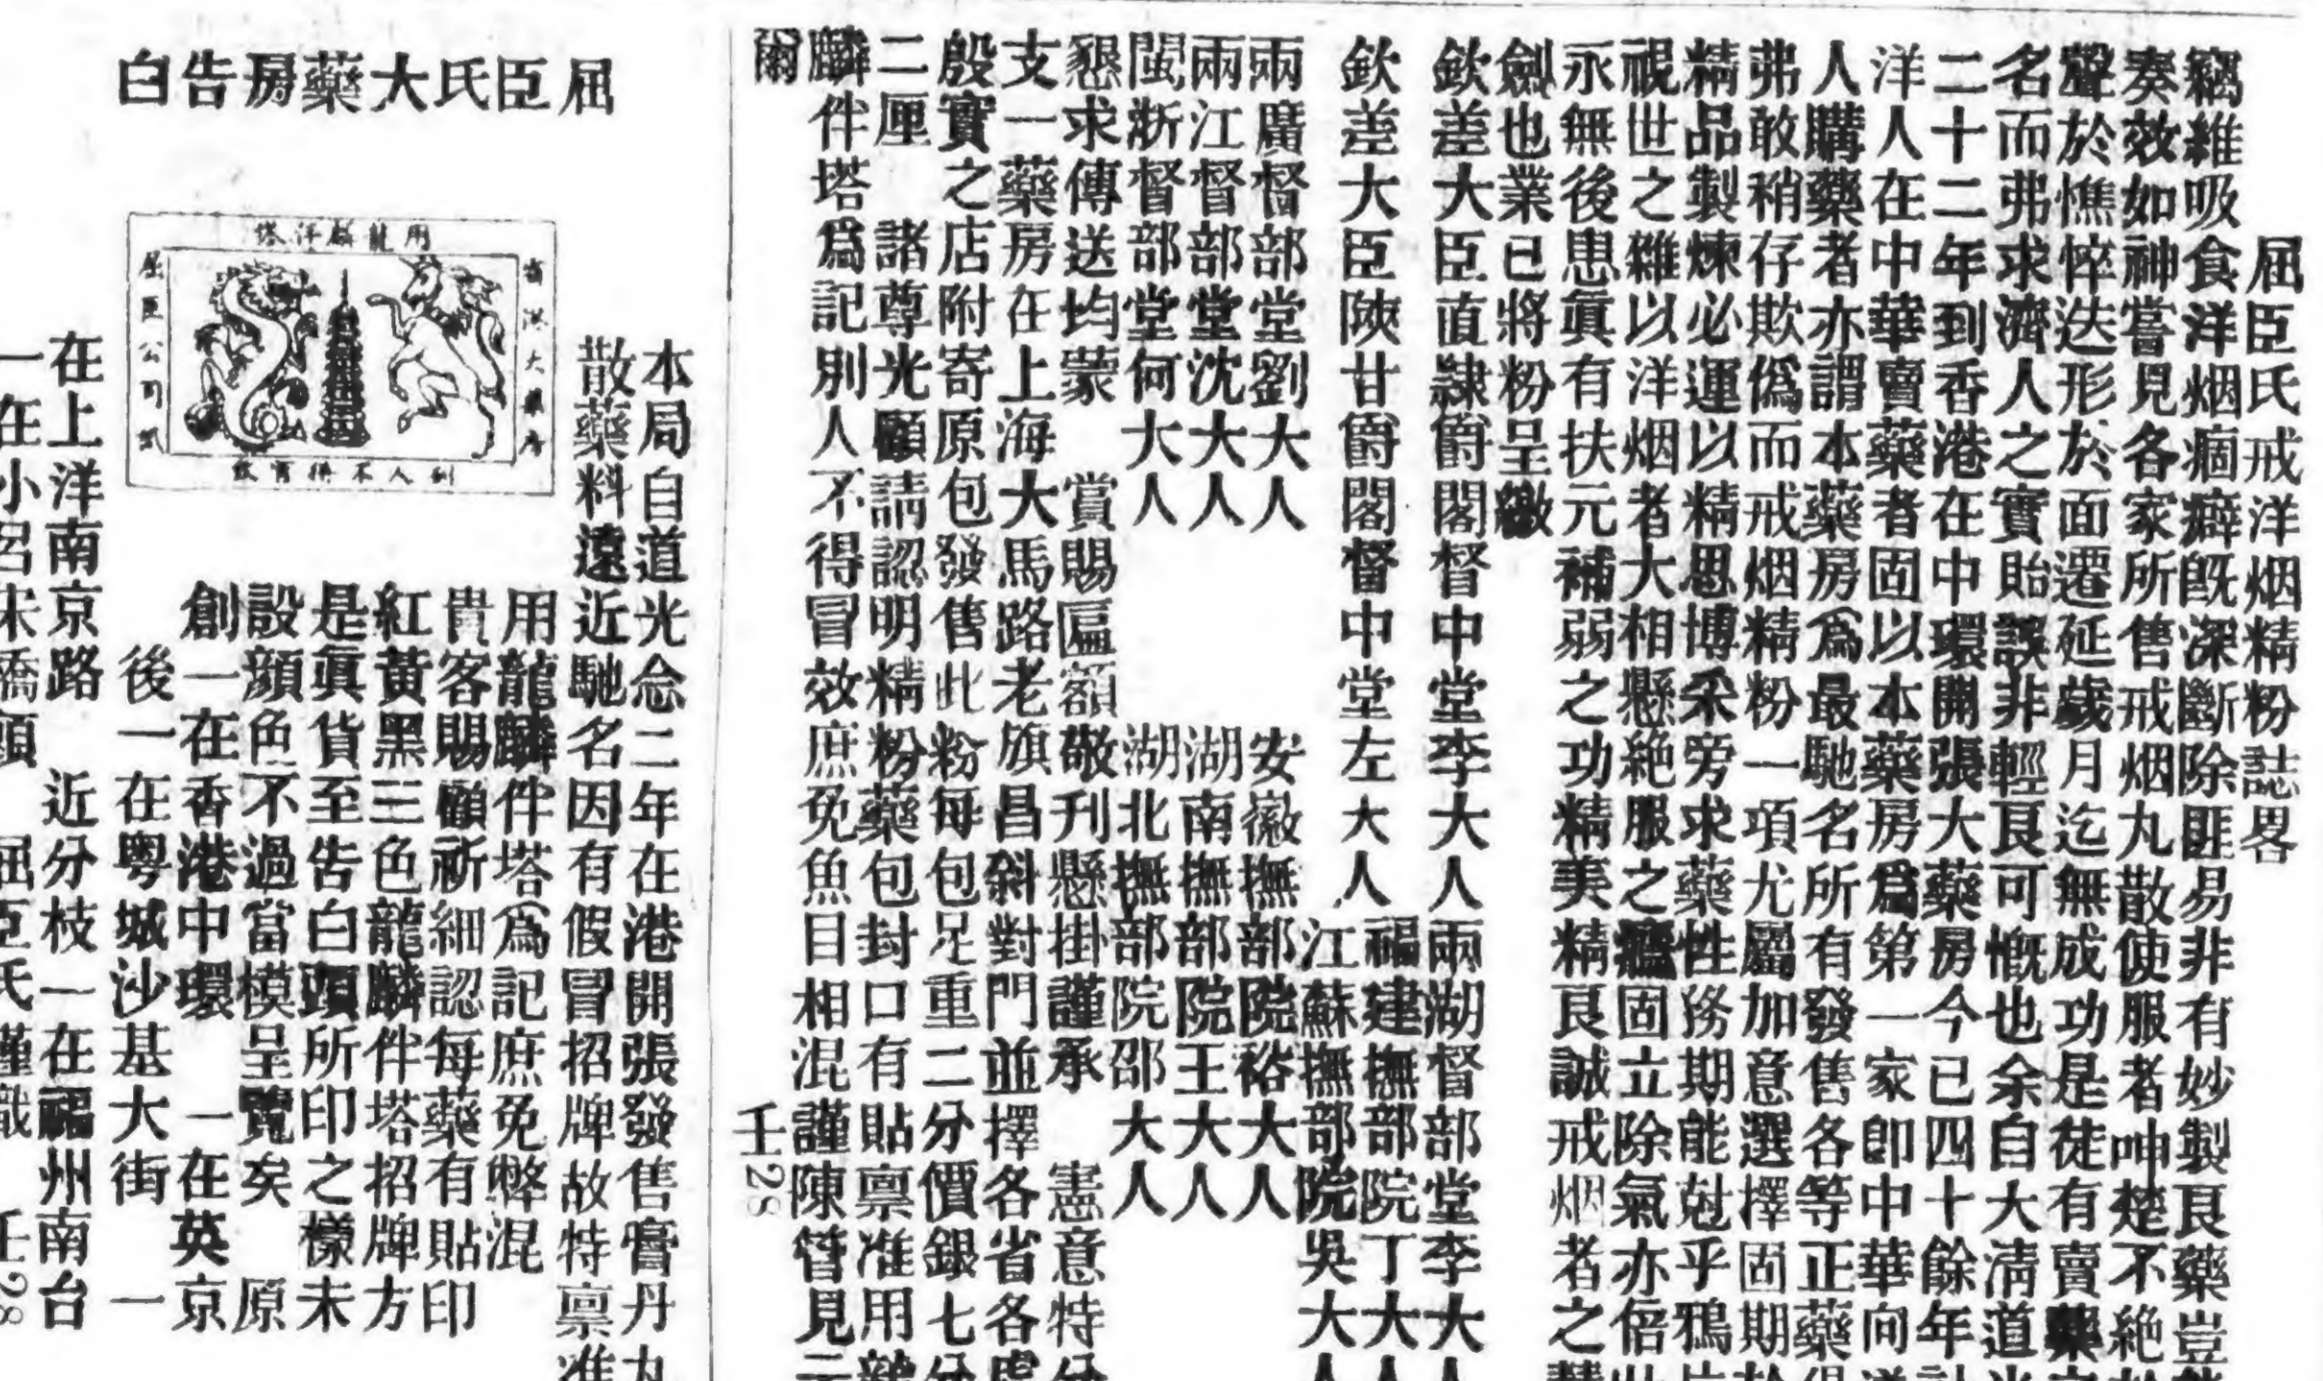 屈臣氏戒洋烟精粉誌畧
竊維吸食洋烟痼癖既深斷除匪易非有妙製良藥豈
奏效如神嘗見各家所售戒烟丸散使服者呻楚不絕
聲於憔悴迭形於面遷延歲月迄無成功是徒有賣藥
名而弗求濟人之實貽誤非輕良可慨也余自大清道光
二十二年到香港在中環開張大藥房今已四十餘年計
洋人在中華賣藥者固以本藥房爲第一家卽中華向
人購藥者亦謂本藥房爲最馳名所有發售各等正藥
弗敢稍存欺僞而戒烟精粉一項尤屬加意選擇固期
精品製煉必運以精思博采旁求藥性務期能尅乎鴉片
視世之雜以洋烟者大相懸絕服之癮固立除氣亦倍
永無後患眞有扶元補弱之功精美精良誠戒烟者之
劍也業已將粉呈繳
欽差大臣直隸爵閣督中堂李大人兩湖督部堂李大人
福建撫部院丁大人
欽差大臣陝甘爵閣督中堂左大人 江蘇撫部院吳大人
兩廣督部堂劉大人 安徽撫部院裕大人
兩江督部堂沈大人 湖南撫部院王大人
閩浙督部堂何大人 湖北撫部院邵大人
懇求傳送均蒙 賞賜匾額敬刊懸掛謹承 憲意特分
支一藥房在上海大馬路老旗昌斜對門並擇各省各處
殷實之店附寄原包發售此粉每包足重二分價銀七分
二厘 諸尊光顧請認明精粉藥包封口有貼禀准用龍
麟伴塔爲記別人不得冒效庶免魚目相混謹陳管見云
爾 壬28
屈臣氏大藥房告白
用龍麟洋塔
香港大藥房
屈臣公司
本局自道光念二年在港開張發售膏丹丸
散藥料遠近馳名因有假冒招牌故特禀准
用龍麟伴塔爲記庶免弊混
貴客賜顧祈細認每藥有貼印
紅黃黑三色龍麟伴塔招牌方
是眞貨至告白頭所印之樣未
設顏色不過當模呈覽矣 原
創一在香港中環 一在英京
後一在粵城沙基大街 一
在上洋南京路 近分枝一在福州南台
一在小呂宋橋頭 屈臣氏謹識 壬28